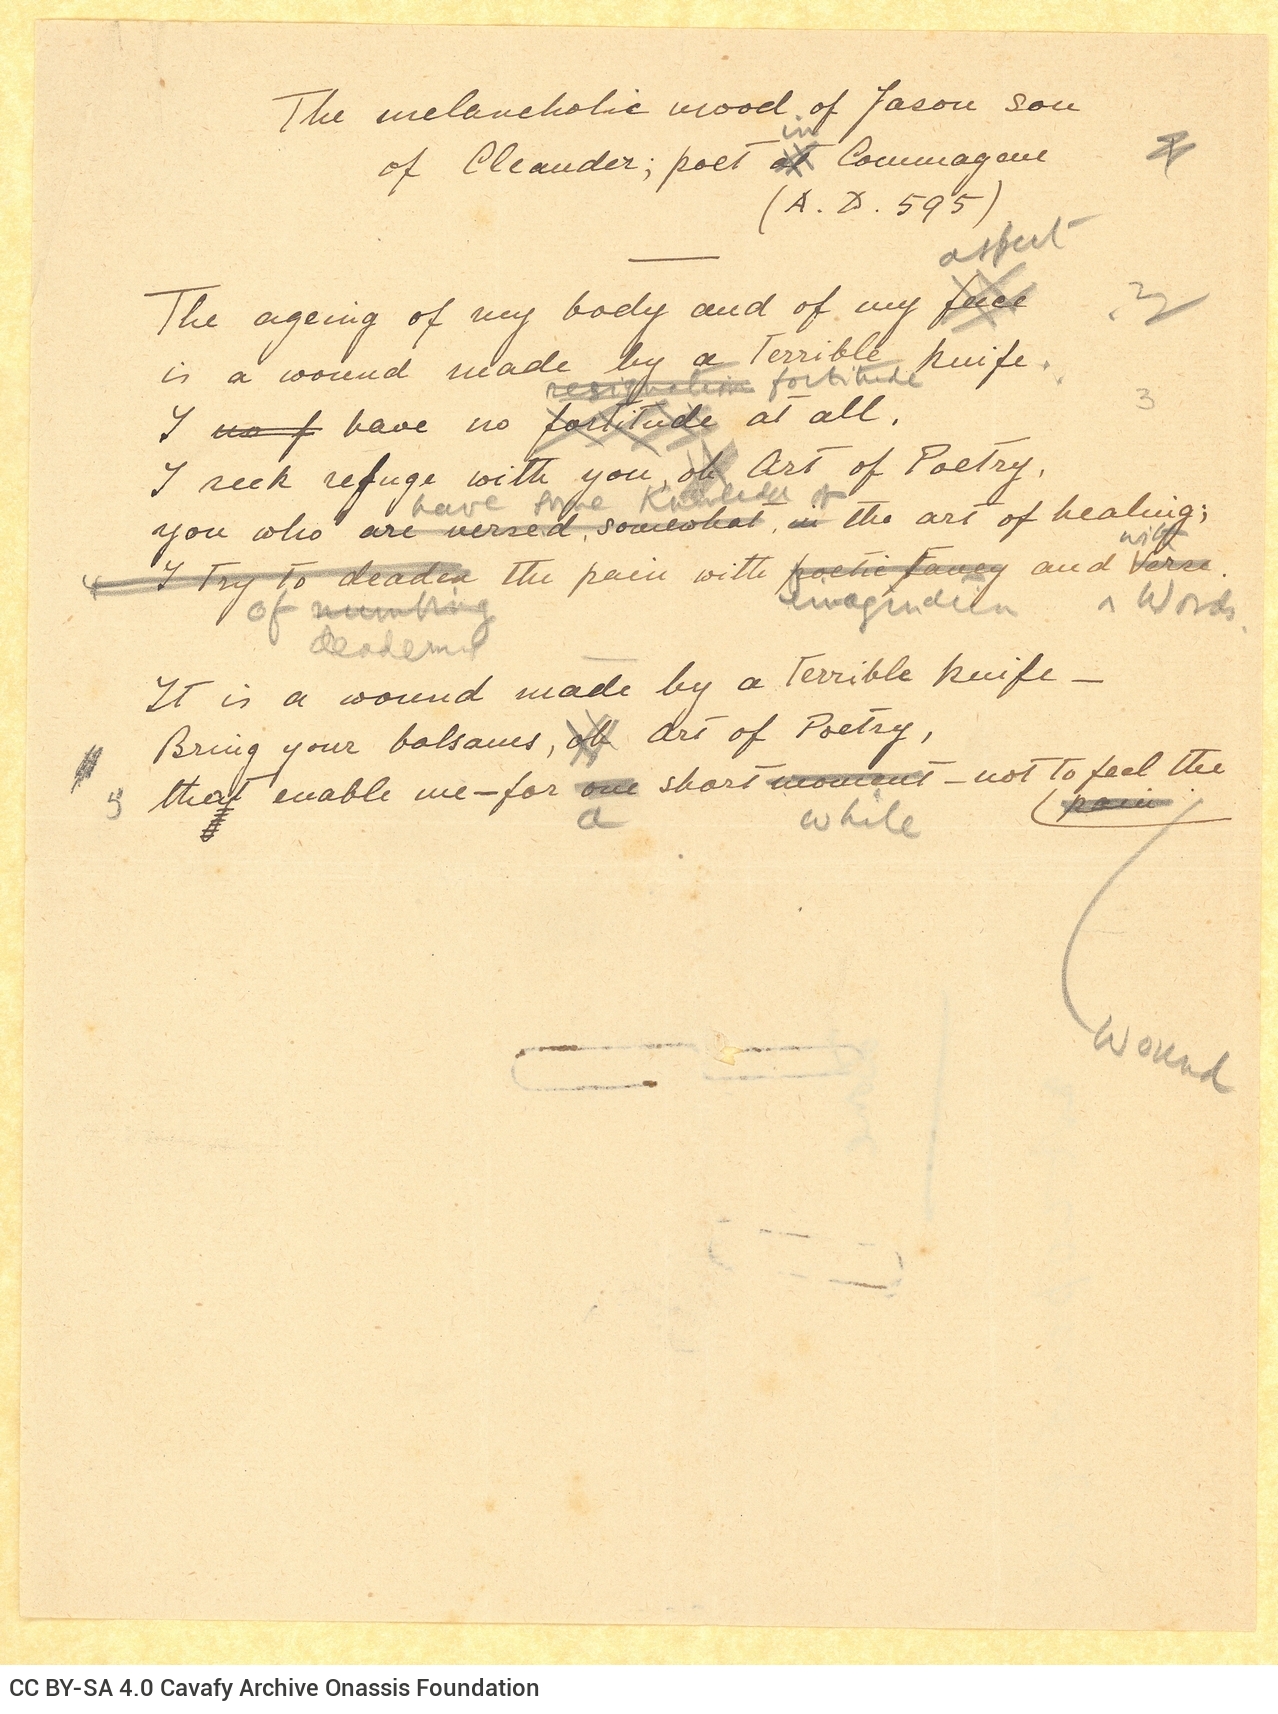 The melancholic mood of Jason son
in
of Cleander; poet at Commagene
(A. D. 595)
aspect
The ageing of my body and of my face
is a wound made by a Terrible knife.
resignation fortitude
3
I no f have no fortitude at all.
I seek refuge with you, oh Art of Poetry,
have some Knowledge of
you who are versed, somewhat, in the art of healing;
with
I Try To deaden the pain with poetic fancy and Verse.
of numbing imagination Words.
deadening
It is a wound made by a Terrible knife —
Bring your balsams, oh Art of Poetry,
5 that enable me—for one short moment—not To feel the
(pain
a while
Wound
CC BY-SA 4.0 Cavafy Archive Onassis Foundation